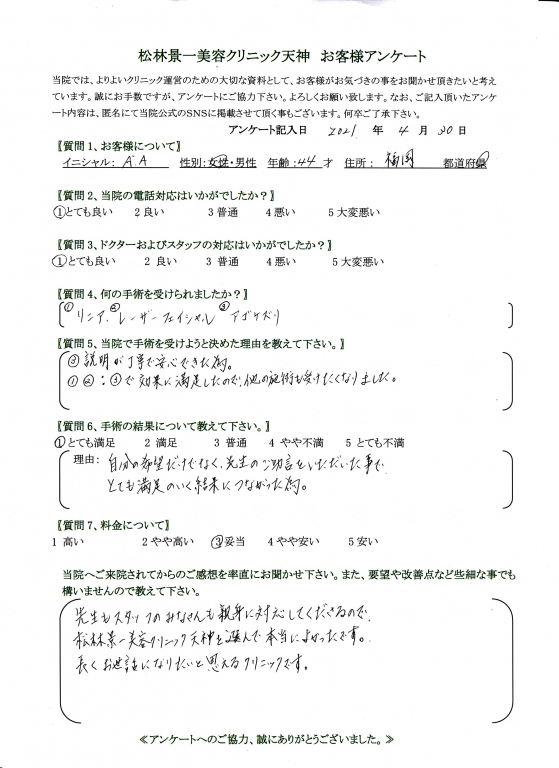 松林景一美容クリニック天神 お客様アンケート
当院では、よりよいクリニック運営のための大切な資料として、お客様がお気づきの事をお聞かせ頂きたいと考え
ています。誠にお手数ですが、アンケートにご協力下さい。よろしくお願い致します。なお、ご記入頂いたアンケ
ート内容は、匿名にて当院公式のSNSに掲載させて頂く事もございます。何卒ご了承下さい。
アンケート記入日 2021 年 4 月 30 日
【質問1、お客様について】
イニシャル: A.A 性別:女性・男性 年齢:44 才 住所: 福岡 都道府県
【質問2、当院の電話対応はいかがでしたか?】
①とても良い 2 良い 3 普通 4 悪い 5 大変悪い
【質問3、ドクターおよびスタッフの対応はいかがでしたか?】
①とても良い 2 良い 3 普通 4 悪い 5 大変悪い
【質問4、何の手術を受けられましたか?】
①リニア、②レーザーフェイシャル ③アゴケズリ
【質問5、当院で手術を受けようと決めた理由を教えて下さい。】
③説明が丁寧で安心できた為。
①②:③で効果に満足したので、他の施術も受けたくなりました。
【質問6、手術の結果について教えて下さい。】
①とても満足 2 満足 3 普通 4 やや不満 5 とても不満
理由: 自分の希望だけでなく、先生のご助言をいただいた事で
とても満足のいく結果につながった為。
【質問7、料金について】
1 高い 2 やや高い ③妥当 4 やや安い 5 安い
当院へご来院されてからのご感想を率直にお聞かせ下さい。また、要望や改善点など些細な事でも
構いませんので教えて下さい。
先生もスタッフのみなさんも親身に対応してくださるので、
松林景一美容クリニック天神を選んで本当によかったです。
長くお世話になりたいと思えるクリニックです。
≪アンケートへのご協力、誠にありがとうございました。≫